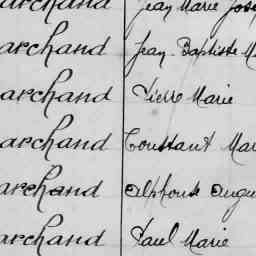 archand Jean Marie Jose
archand Jean Baptiste M
archand Pierre Marie
archand Constant Mar
archand Alphonse Augu
archand Paul Marie